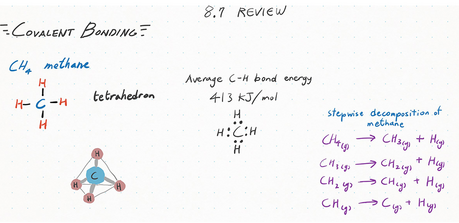 8.7 REVIEW
COVALENT BONDING
CH₄ methane
H
H - C - H
H
tetrahedron
H
H C H
H
Average C-H bond energy
413 KJ/mol
H
H : C : H
H
stepwise decomposition of
methane
CH₄(g) → CH₃(g) + H(g)
CH₃(g) → CH₂(g) + H(g)
CH₂(g) → CH(g) + H(g)
CH(g) → C(g) + H(g)